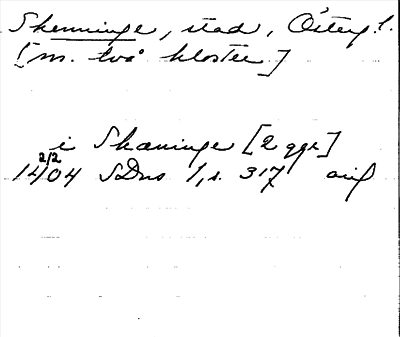 Skenninge, stad, Östergl.
[m. två kloster]
i Skaninge [2 ggr]
2/2
1404 SDns 1, s. 317 orig